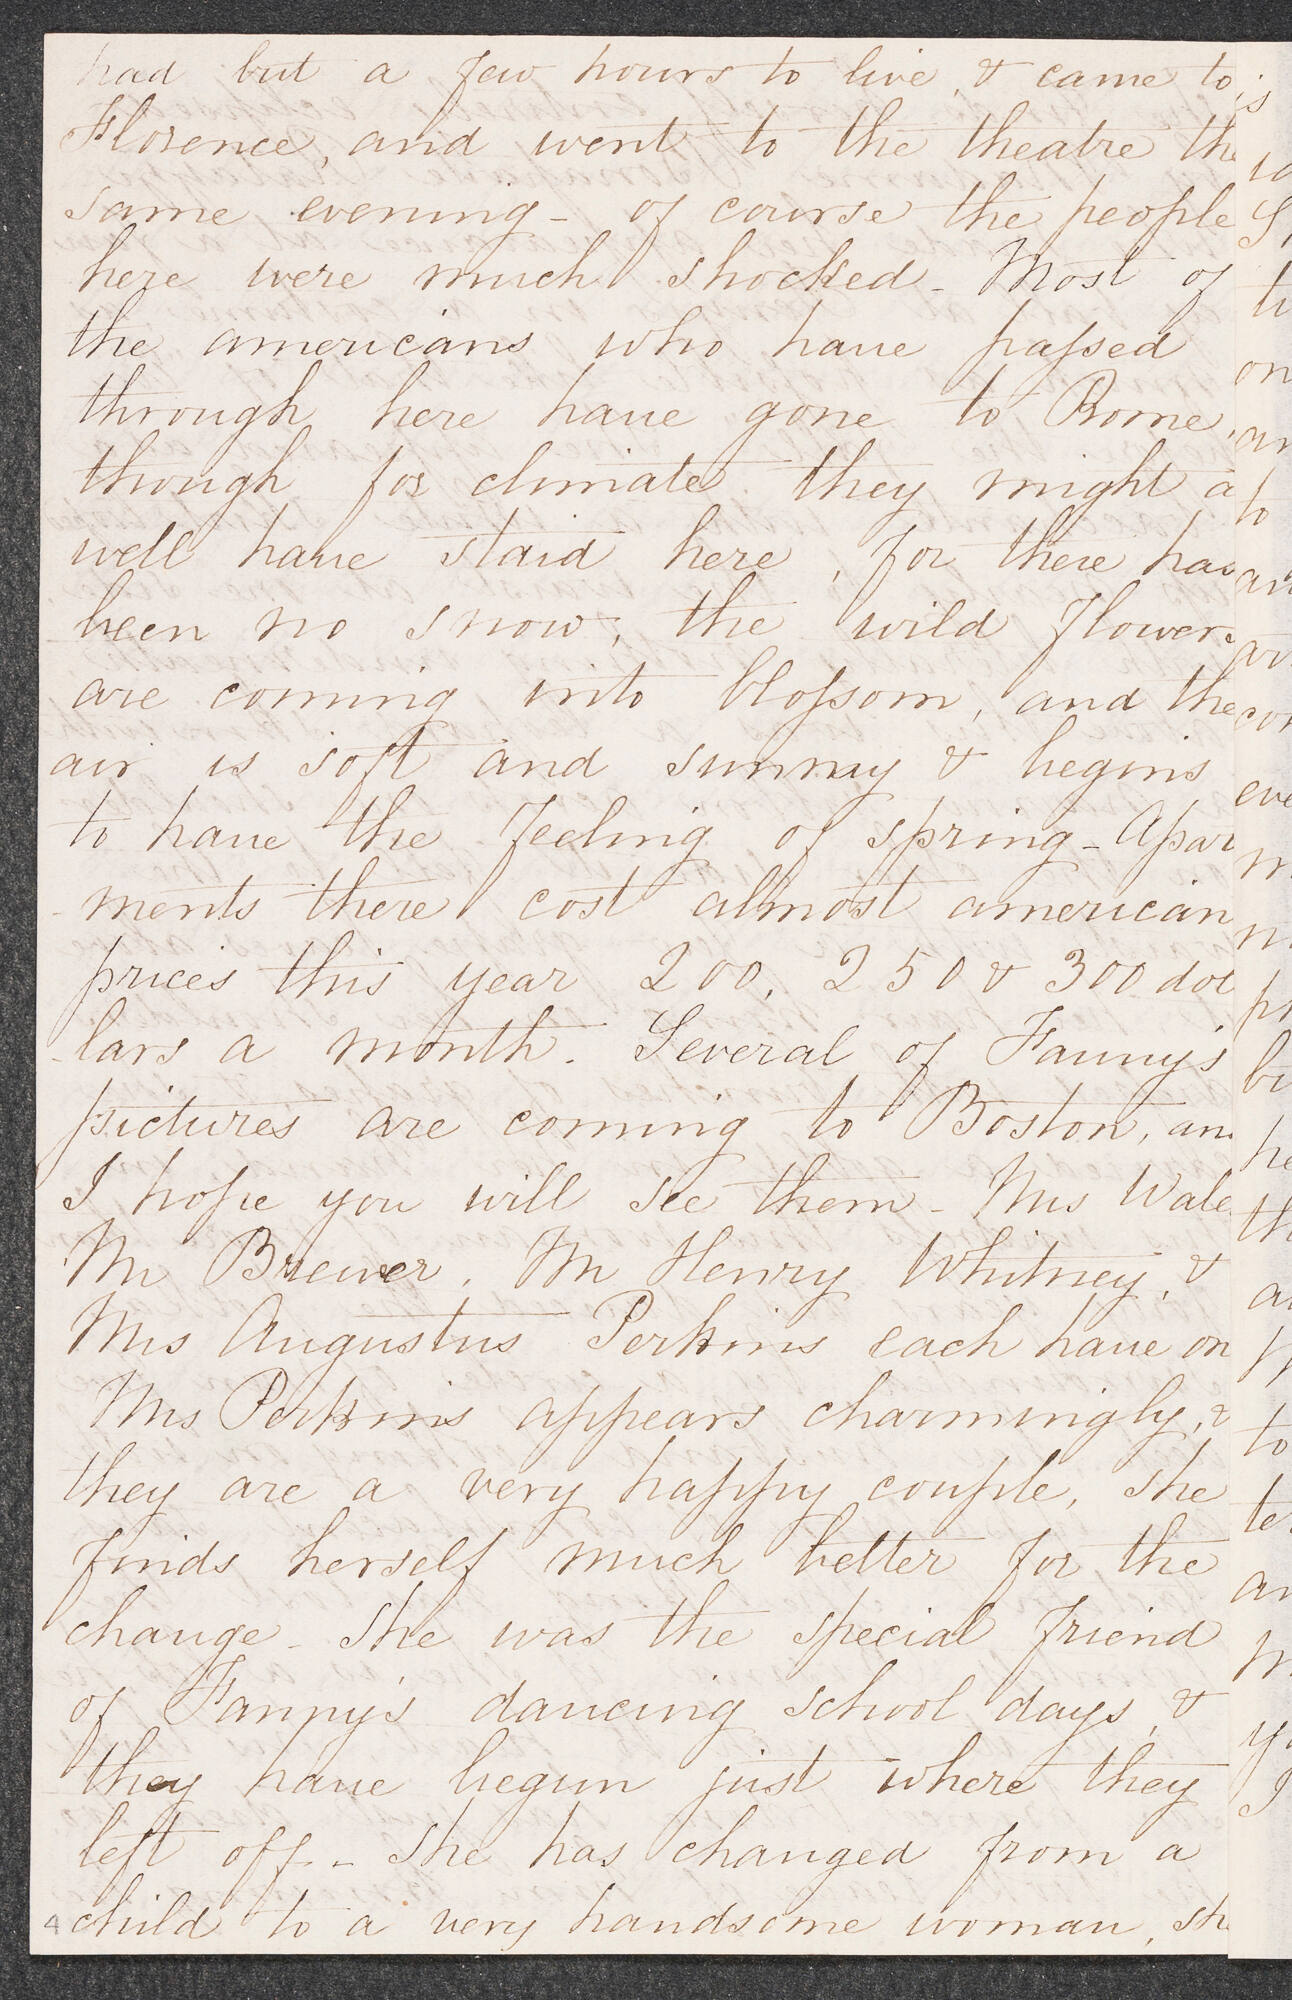 had but a few hours to live, & came to
Florence, and went to the theatre the
same evening - of course the people
here were much shocked - Most of
the americans who have passed
through here have gone to Rome,
though for climate they might a
well have staid here, for there has
been no snow, the wild flowers
are coming into blossom, and the
air is soft and sunny & begins
to have the feeling of spring - Apar
-ments there cost almost american
prices this year 200, 250 & 300 dol
-lars a month. Several of Fanny's
pictures are coming to Boston, an
I hope you will see them - Mrs Wale
Mr Brewer, Mr Henry Whitney, &
Mrs Augustus Perkins each have on
Mrs Perkins appears charmingly, &
they are a very happy couple, she
finds herself much better for the
change - She was the special friend
of Fanny's dancing school days, &
they have begun just where they
left off - She has changed from a
child to a very handsome woman, she
4